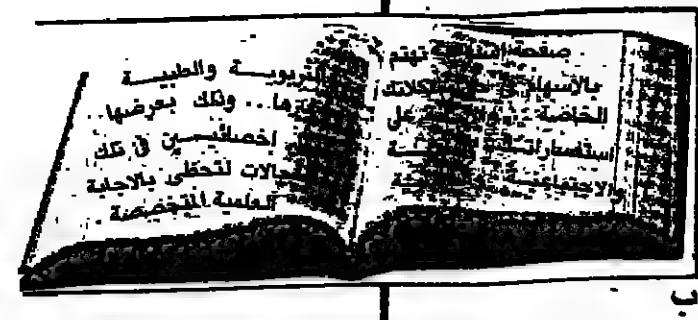 صفحة تهتم
بالاسهام في حل مشكلاتك
الخاصة على
استفساراتك
والاجتماعية
التربويـــة والطبيـــة
وغيرها... وذلك بعرضها
على إخصائيـــين في تلك
المجالات لتحظى بالاجابة
العلمية المتخصصة .
ب